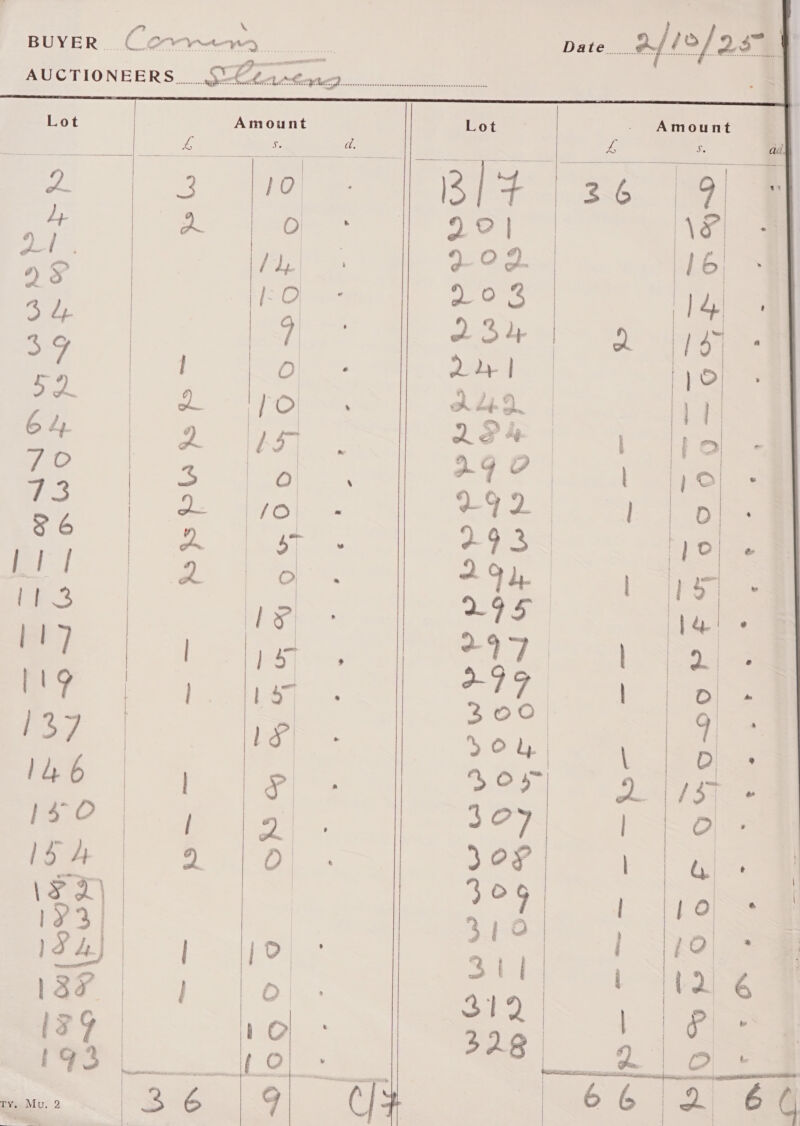 BUYER Comins
Date 2/10/25
AUCTIONEERS Stevens
Lot Amount
£ s. d.
2 3 10 -
4 2 0 -
21. 14 -
28 10 -
34 9 -
39 1 0 -
52 2 10 -
64 2 15 -
70 3 0 -
73 2 10 -
86 2 5 -
111 2 0 -
113 18 -
117 1 15 -
119 1 15 -
137 18 -
146 1 8 -
150 1 2 -
154 2 0 -
182
183
184 1 10 -
188 1 0 -
189 10 -
193 10 -
36 9 C/7
TY. Mu. 2
Lot Amount
£ s. d.
B/7 36 9 "
201 18 -
202 16 -
203 14 -
234 2 15 -
241 10 -
242 11
284 1 10 -
290 1 10 -
292 1 0 -
293 10 -
294 1 15 -
295 14 -
297 1 2 -
299 1 0 -
300 9 -
304 1 0 -
305 2 15 -
307 1 0 -
308 1 4 -
309 1 10 -
310 1 10 -
311 1 12 6
312 1 8 -
328 2 0 -
66 2 6